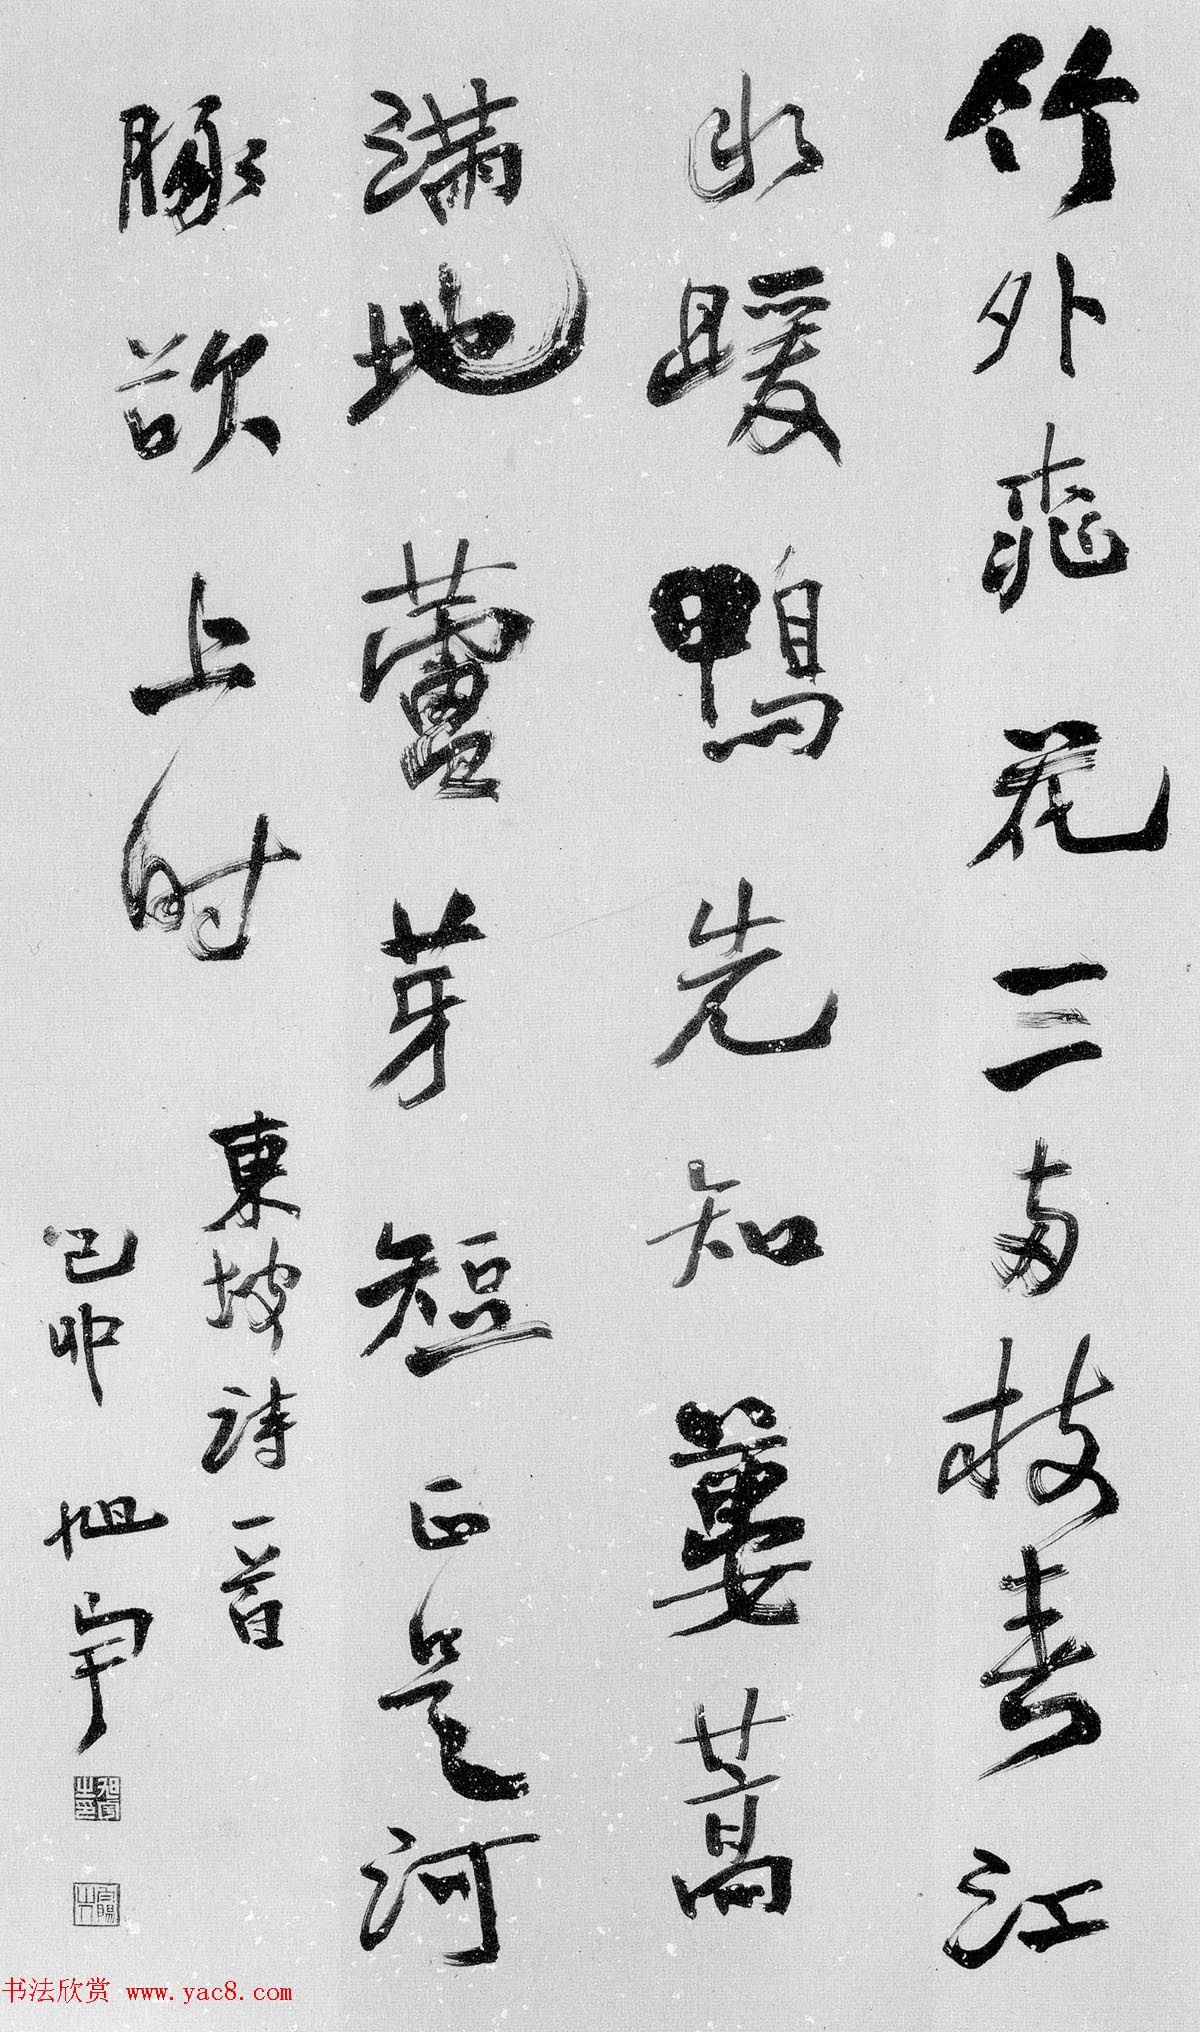 竹外桃花三兩枝春江
水暖鴨先知蔞蒿
滿地蘆芽短正是河
豚欲上时
東坡詩一首
己卯 旭宇
书法欣赏 www.yac8.com